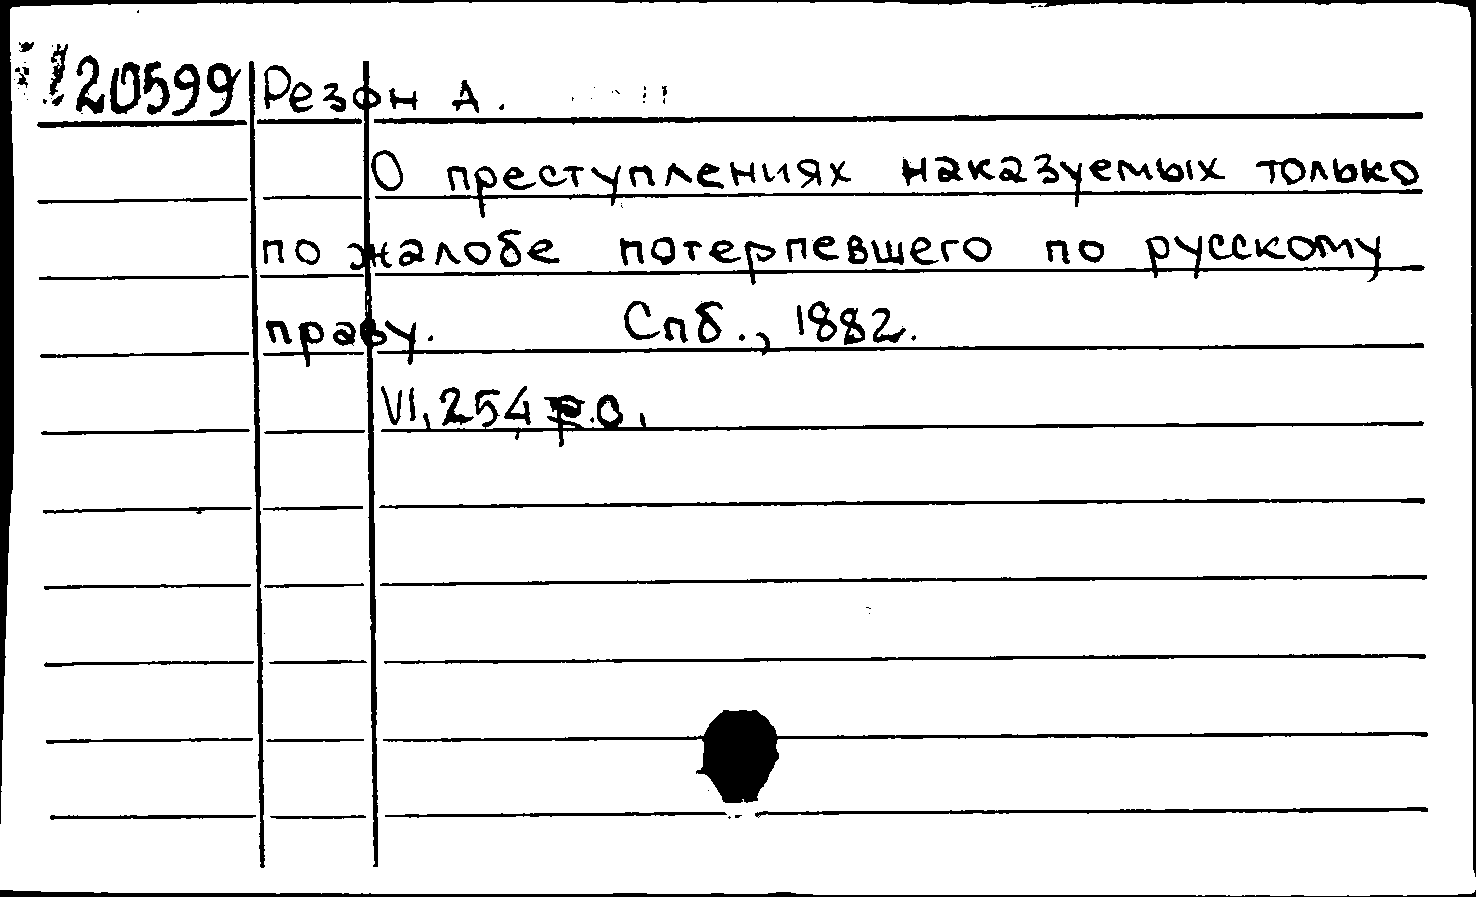 20599 Резон А.
О преступлениях наказуемых только
по жалобе потерпевшего по русскому
праву. Спб., 1882.
VI, 254, с.